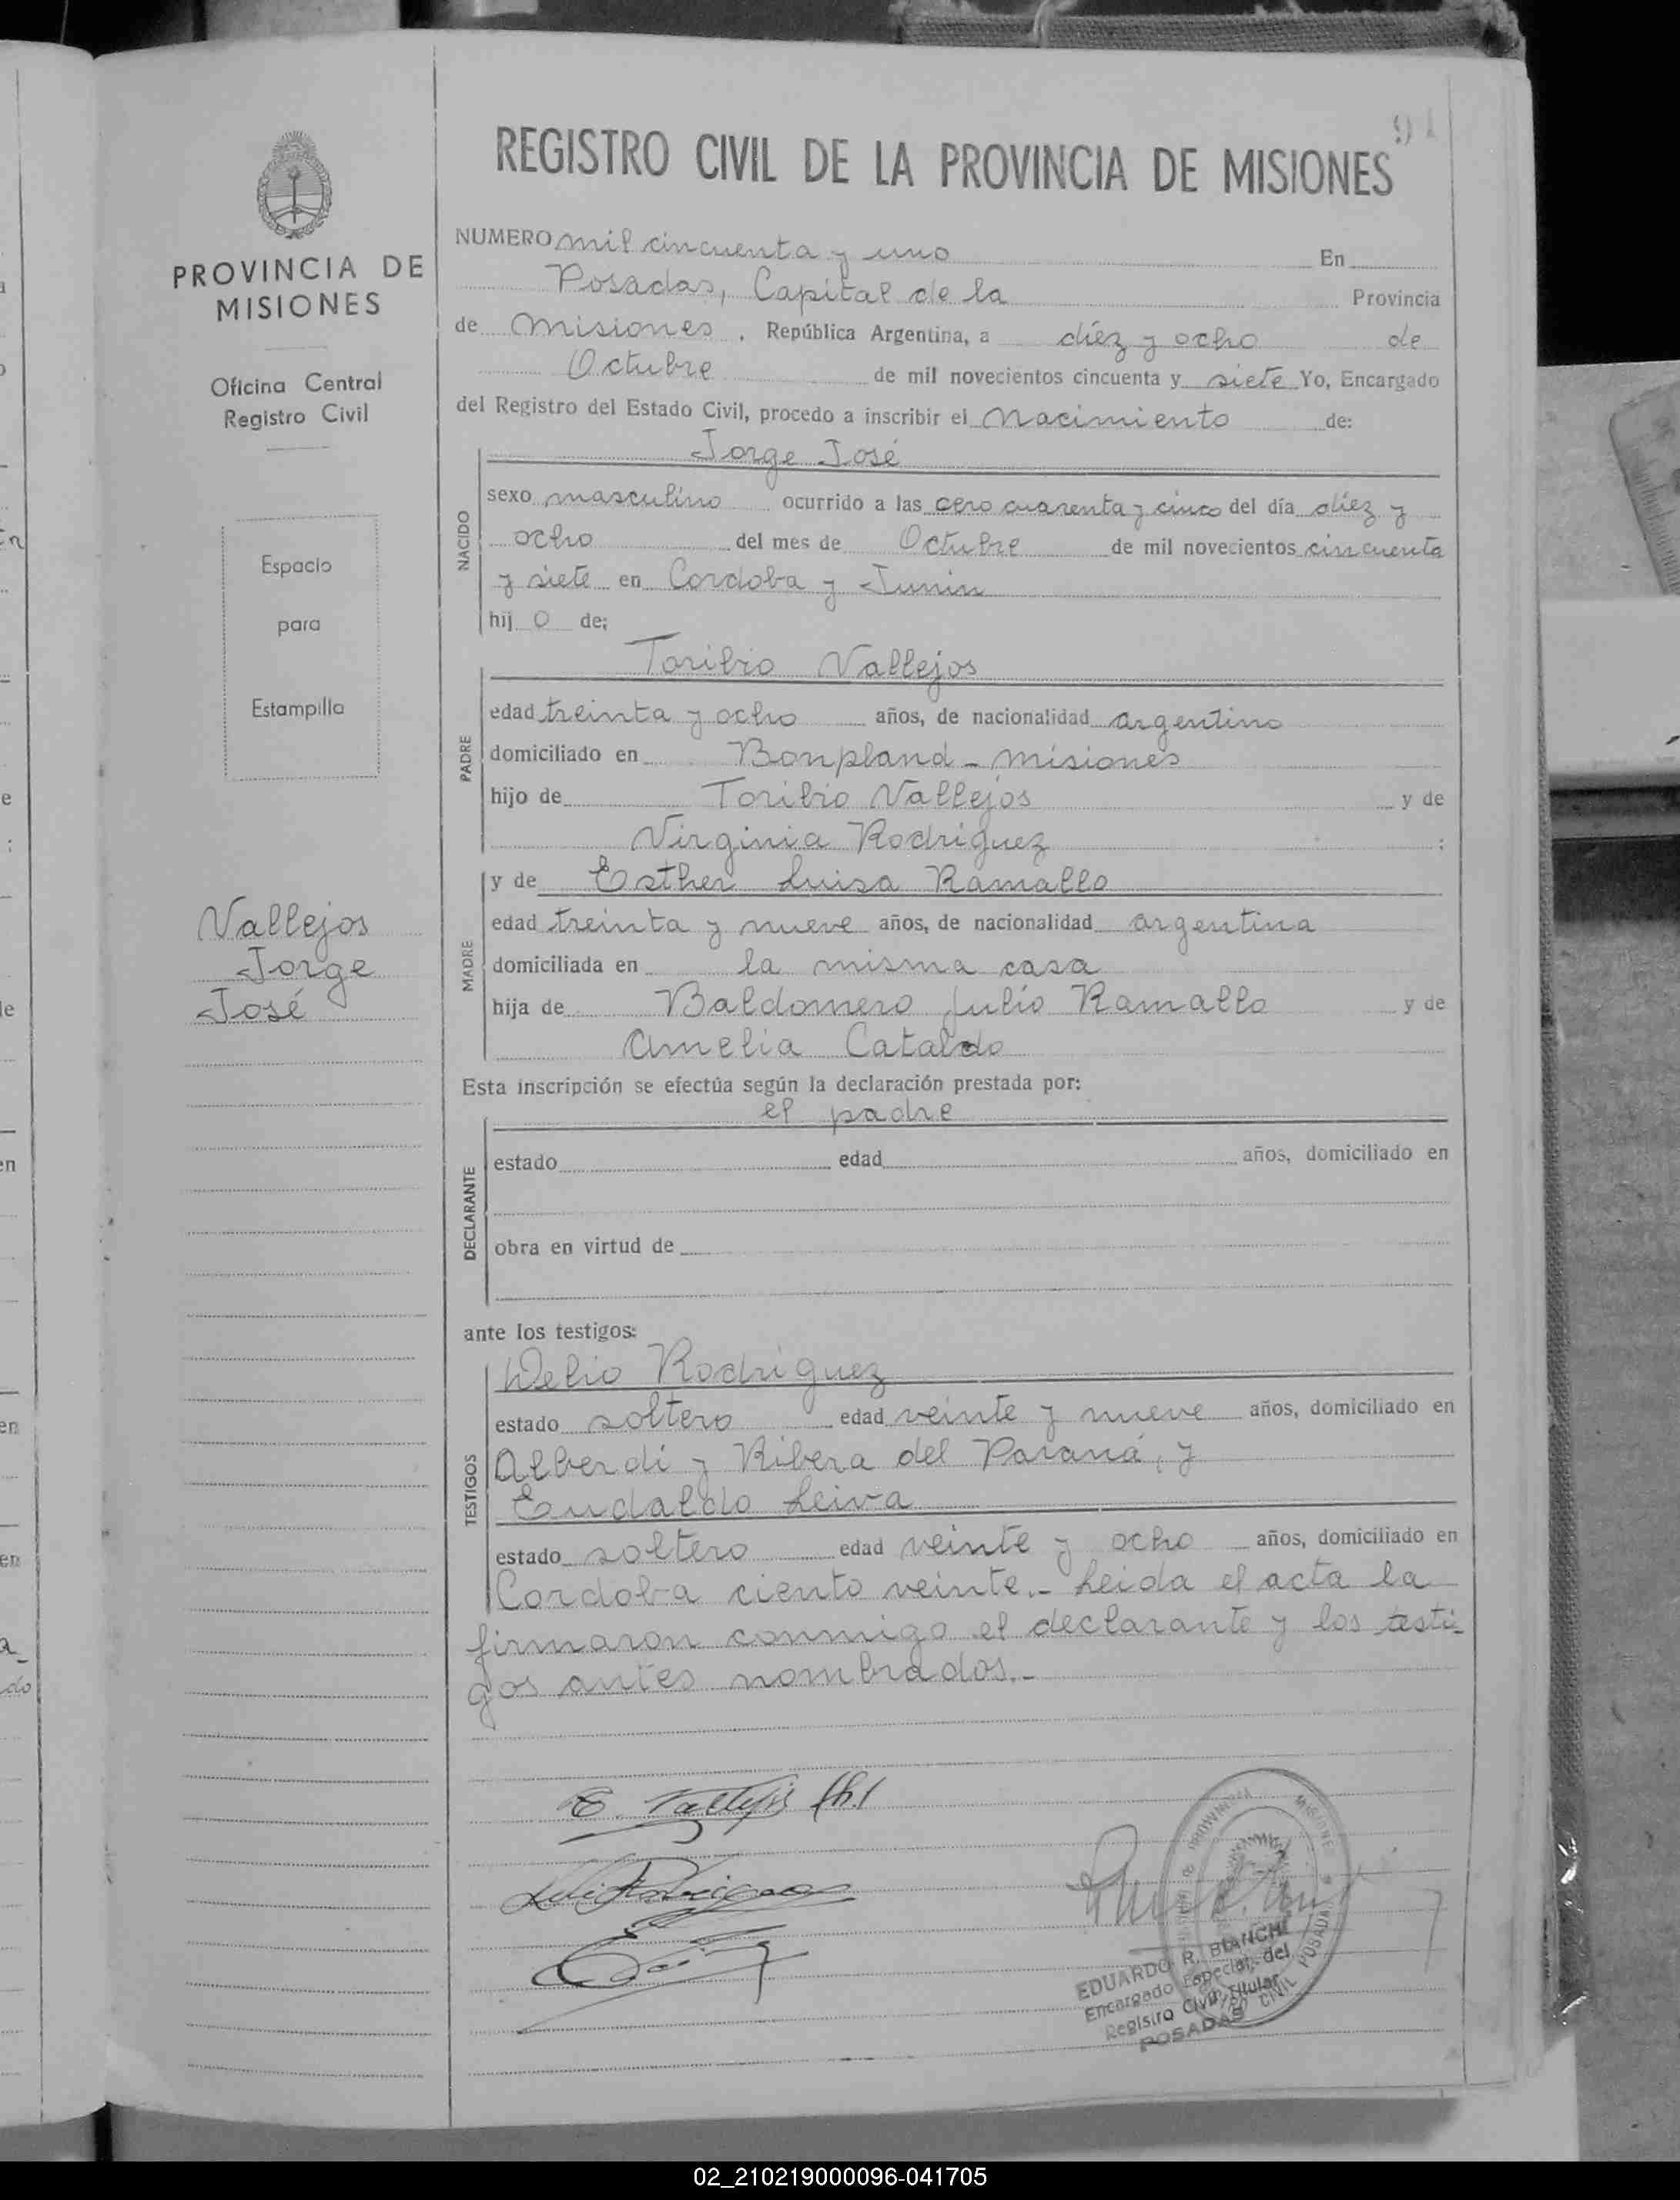 91
REGISTRO CIVIL DE LA PROVINCIA DE MISIONES
PROVINCIA DE
MISIONES
Oficina Central
Registro Civil
Espacio
para
Estampilla
Vallejos
Jorge
José
NUMERO mil cincuenta y uno En
Posadas, Capital de la Provincia
de Misiones, República Argentina, a diéz y ocho de
Octubre de mil novecientos cincuenta y siete Yo, Encargado
del Registro del Estado Civil, procedo a inscribir el Nacimiento de:
Jorge José
NACIDO
sexo masculino ocurrido a las cero cuarenta y cinco del día diéz y
ocho del mes de Octubre de mil novecientos cincuenta
y siete en Cordoba y Junin
hij o de;
Toribio Vallejos
PADRE
edad treinta y ocho años, de nacionalidad argentino
domiciliado en Bonpland - Misiones
hijo de Toribio Vallejos y de
Virginia Rodriguez ;
y de Esther Luisa Ramallo
MADRE
edad treinta y nueve años, de nacionalidad argentina
domiciliada en la misma casa
hija de Baldomero Julio Ramallo y de
Amelia Cataldo
Esta inscripción se efectúa según la declaración prestada por:
el padre
DECLARANTE
estado edad años, domiciliado en
obra en virtud de
ante los testigos:
Delio Rodriguez
TESTIGOS
estado soltero edad veinte y nueve años, domiciliado en
Alberdi y Ribera del Paraná, y
Eudaldo Leiva
estado soltero edad veinte y ocho años, domiciliado en
Cordoba ciento veinte.- Leida el acta la
firmaron conmigo el declarante y los testi-
gos antes nombrados.-
T. Vallejos (h.)
EDUARDO R. BIANCHI
Encargado Especial del
Registro Civil Titular
POSADAS
PROVINCIA MISIONES
CIVIL POSADAS
02_210219000096-041705